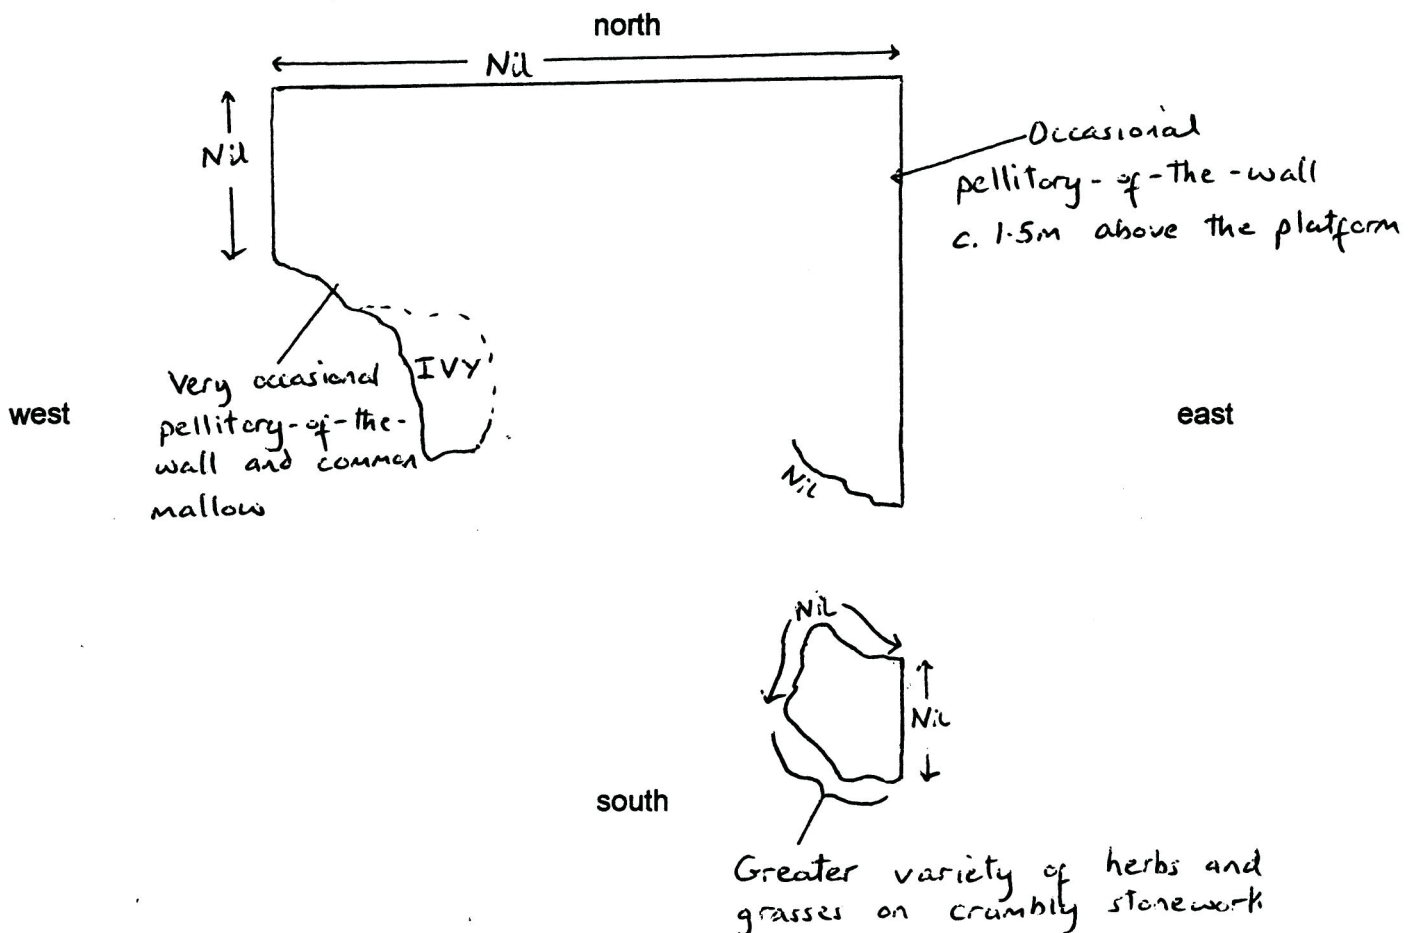 north
Nil
Nil
Occasional
pellitory-of-the-wall
c. 1.5m above the platform
IVY
Very occasional
pellitory-of-the-
wall and common
mallow
west
east
Nil
Nil
Nil
south
Greater variety of herbs and
grasses on crumbly stonework